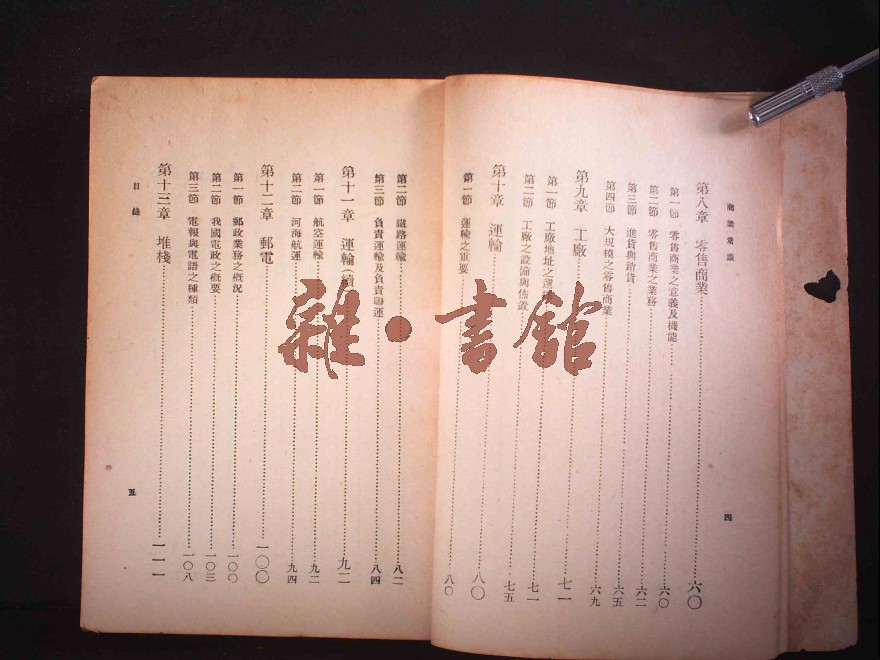 商業常識
第八章 零售商業……六〇
第一節 零售商業之意義及機能……六〇
第二節 零售商業之業務……六二
第三節 進貨與銷貨……六五
第四節 大規模之零售商業……六九
第九章 工廠……七一
第一節 工廠地址之選擇……七一
第二節 工廠之設備與佈置……七五
第十章 運輸……八〇
第一節 運輸之重要……八〇
四
第二節 鐵路運輸……八二
第三節 負責運輸及負責聯運……八四
第十一章 運輸(續)……九二
第一節 航空運輸……九二
第二節 河海航運……九四
第十二章 郵電……一〇〇
第一節 郵政業務之概況……一〇〇
第二節 我國電政之概要……一〇三
第三節 電報與電語之種類……一〇八
第十三章 堆棧……一一一
目錄
五
雜·書館